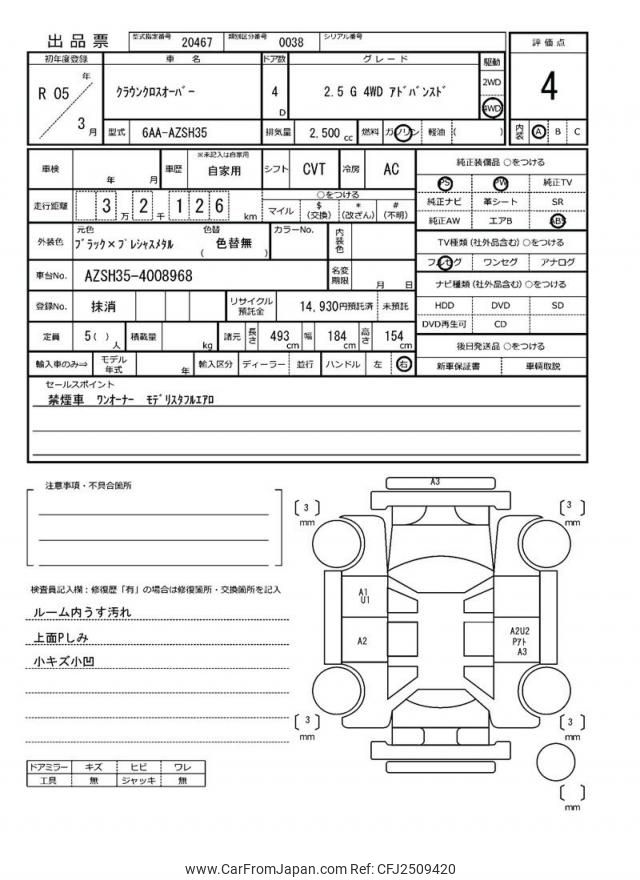 出品票 型式指定番号 20467 類別区分番号 0038 シリアル番号
初年度登録 車 名 ドア数 グレード 駆動 評価点
R 05 年 3 月 クラウンクロスオーバー 4 D 2.5 G 4WD アドバンスド 2WD 4WD 4
型式 6AA-AZSH35 排気量 2,500 cc 燃料 ガソリン 軽油 ( ) 内装 A B C
車検 年 月 車歴 ※未記入は自家用 自家用 シフト CVT 冷房 AC 純正装備品 ○をつける
PS PW 純正TV
走行距離 3 万 2 千 1 2 6 km ○をつける
マイル $ (交換) * (改ざん) # (不明)
純正ナビ 革シート SR
純正AW エアB ABS
外装色 元色 ブラック×プレシャスメタル 色替 ( 色替無 ) カラーNo. 内装色
TV種類 (社外品含む) ○をつける
フルセグ ワンセグ アナログ
車台No. AZSH35-4008968 名変期限 月 日
ナビ種類 (社外品含む) ○をつける
登録No. 抹消 リサイクル預託金 14,930円預託済 未預託
HDD DVD SD
DVD再生可 CD
定員 5( ) 人 積載量 kg 諸元 長さ 493 cm 幅 184 cm 高さ 154 cm
後日発送品 ○をつける
輸入車のみ⇒ モデル年式 年 輸入区分 ディーラー 並行 ハンドル 左 右
新車保証書 車輌取説
セールスポイント
禁煙車 ワンオーナー モデリスタフルエアロ
注意事項・不具合箇所
検査員記入欄：修復歴「有」の場合は修復箇所・交換箇所を記入
ルーム内うす汚れ
上面Pしみ
小キズ小凹
ドアミラー キズ ヒビ ワレ
工具 無 ジャッキ 無
A3
[ 3 ] mm
[ 3 ] mm
A1
U1
A2
A2U2
Pアト
A3
[ 3 ] mm
[ 3 ] mm
[ ] mm
www.CarFromJapan.com Ref: CFJ2509420